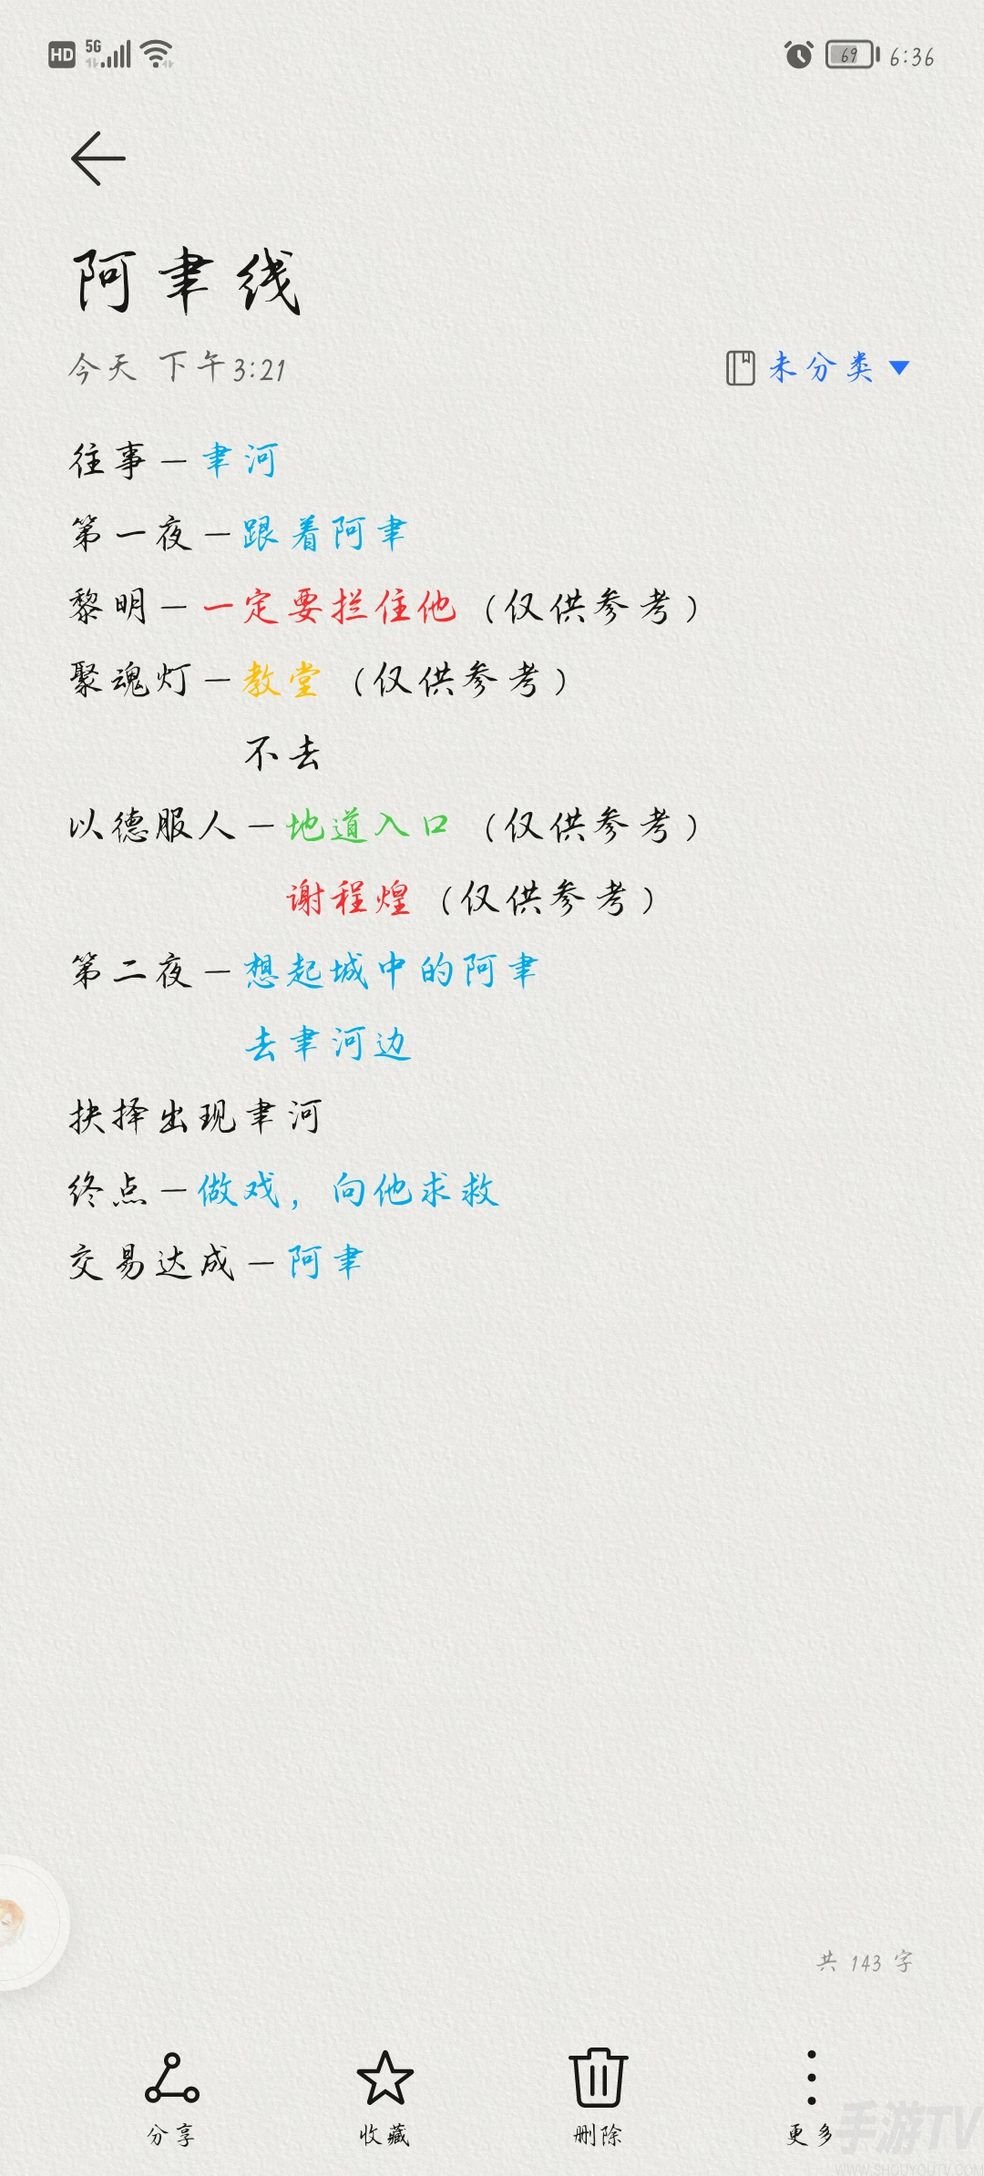 HD 5G 69 6:36
阿聿线
今天 下午3:21 未分类
往事—聿河
第一夜—跟着阿聿
黎明—一定要拦住他（仅供参考）
聚魂灯—教堂（仅供参考）
不去
以德服人—地道入口（仅供参考）
谢程煌（仅供参考）
第二夜—想起城中的阿聿
去聿河边
抉择出现聿河
终点—做戏，向他求救
交易达成—阿聿
共 143 字
分享 收藏 删除 更多
手游TV
WWW.SHOUYOUTV.COM